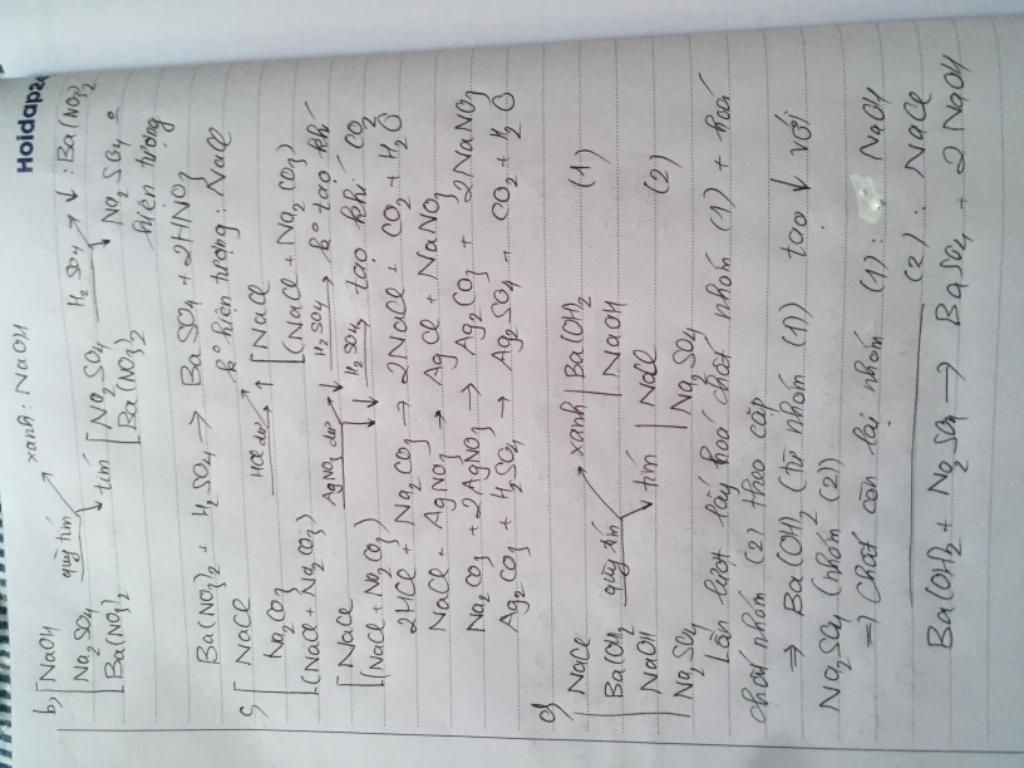 Hoidap247
b) [ NaOH
Na2SO4
Ba(NO3)2
quỳ tím
xanh: NaOH
tím [ Na2SO4
Ba(NO3)2
H2SO4
↓: Ba(NO3)2
Na2SO4: ko
hiện tượng
Ba(NO3)2 + H2SO4 → BaSO4 + 2HNO3
c) [ NaCl
Na2CO3
(NaCl + Na2CO3)
HCl dư
ko hiện tượng: NaCl
↑ [ NaCl
(NaCl + Na2CO3)
[ NaCl
(NaCl + Na2CO3)
AgNO3 dư
↓ H2SO4 → ko tạo khí
↓ H2SO4 → tạo khí CO2
2HCl + Na2CO3 → 2NaCl + CO2 + H2O
NaCl + AgNO3 → AgCl + NaNO3
Na2CO3 + 2AgNO3 → Ag2CO3 + 2NaNO3
Ag2CO3 + H2SO4 → Ag2SO4 + CO2 + H2O
d) NaCl
Ba(OH)2
NaOH
Na2SO4
quỳ tím
xanh | Ba(OH)2 (1)
NaOH
tím | NaCl (2)
Na2SO4
Lần lượt lấy hoá chất nhóm (1) + hoá
chất nhóm (2) theo cặp
⇒ Ba(OH)2 (từ nhóm (1)) tạo ↓ với
Na2SO4 (nhóm (2))
⇒ Chất còn lại nhóm (1): NaOH
(2): NaCl
Ba(OH)2 + Na2SO4 → BaSO4 + 2NaOH